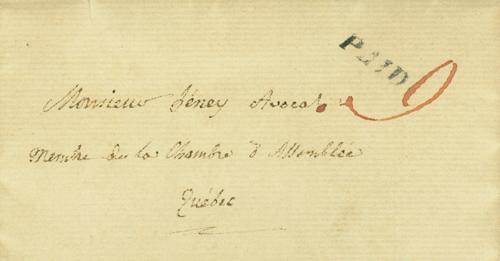 PAID 9
Monsieur Féney Avocat
Membre de la Chambre d'Assemblée
Québec